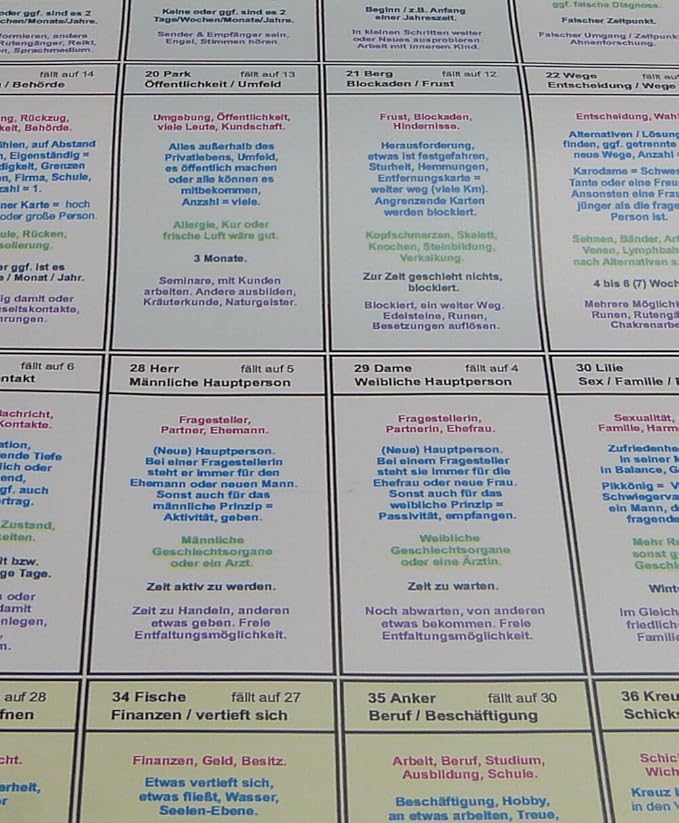 oder ggf. sind es 2
ochen/Monate/Jahre.
formieren, andere
Rutengänger, Reiki,
n, Sprachmedium.
Keine oder ggf. sind es 2
Tage/Wochen/Monate/Jahre.
Sender & Empfänger sein,
Engel, Stimmen hören.
Beginn / z.B. Anfang
einer Jahreszeit.
In kleinen Schritten weiter
oder Neues ausprobieren
Arbeit mit innerem Kind.
ggf. falsche Diagnose.
Falscher Zeitpunkt.
Falscher Umgang / Zeitpunk
Ahnenforschung.
fällt auf 14
/ Behörde
ng, Rückzug,
keit, Behörde.
ühlen, auf Abstand
n, Eigenständig =
digkeit, Grenzen
en, Firma, Schule,
zahl = 1.
ner Karte = hoch
oder große Person.
ule, Rücken,
solierung.
er ggf. ist es
e / Monat / Jahr.
ig damit oder
seitskontakte,
hrungen.
20 Park fällt auf 13
Öffentlichkeit / Umfeld
Umgebung, Öffentlichkeit,
viele Leute, Kundschaft.
Alles außerhalb des
Privatlebens, Umfeld,
es öffentlich machen
oder alle können es
mitbekommen,
Anzahl = viele.
Allergie, Kur oder
frische Luft wäre gut.
3 Monate.
Seminare, mit Kunden
arbeiten. Andere ausbilden,
Kräuterkunde, Naturgeister.
21 Berg fällt auf 12
Blockaden / Frust
Frust, Blockaden,
Hindernisse.
Herausforderung,
etwas ist festgefahren,
Sturheit, Hemmungen,
Entfernungskarte =
weiter weg (viele Km).
Angrenzende Karten
werden blockiert.
Kopfschmerzen, Skelett,
Knochen, Steinbildung,
Verkalkung.
Zur Zeit geschieht nichts,
blockiert.
Blockiert, ein weiter Weg.
Edelsteine, Runen,
Besetzungen auflösen.
22 Wege fällt au
Entscheidung / Wege
Entscheidung, Wah
Alternativen / Lösung
finden, ggf. getrennte
neue Wege, Anzahl =
Karodame = Schwes
Tante oder eine Freu
Ansonsten eine Frau
jünger als die frage
Person ist.
Sehnen, Bänder, Art
Venen, Lymphbah
nach Alternativen s
4 bis 6 (7) Woch
Mehrere Möglichk
Runen, Rutengän
Chakrenarbe
fällt auf 6
ntakt
Nachricht,
Kontakte.
ation,
ende Tiefe
lich oder
end,
gf. auch
rtrag.
Zustand,
eiten.
lt bzw.
ge Tage.
oder
damit
nlegen,
n.
28 Herr fällt auf 5
Männliche Hauptperson
Fragesteller,
Partner, Ehemann.
(Neue) Hauptperson.
Bei einer Fragestellerin
steht er immer für den
Ehemann oder neuen Mann.
Sonst auch für das
männliche Prinzip =
Aktivität, geben.
Männliche
Geschlechtsorgane
oder ein Arzt.
Zeit aktiv zu werden.
Zeit zu Handeln, anderen
etwas geben. Freie
Entfaltungsmöglichkeit.
29 Dame fällt auf 4
Weibliche Hauptperson
Fragestellerin,
Partnerin, Ehefrau.
(Neue) Hauptperson.
Bei einem Fragesteller
steht sie immer für die
Ehefrau oder neue Frau.
Sonst auch für das
weibliche Prinzip =
Passivität, empfangen.
Weibliche
Geschlechtsorgane
oder eine Ärztin.
Zeit zu warten.
Noch abwarten, von anderen
etwas bekommen. Freie
Entfaltungsmöglichkeit.
30 Lilie
Sex / Familie /
Sexualität,
Familie, Harm
Zufriedenhe
in seiner M
in Balance, G
Pikkönig = V
Schwiegerva
ein Mann, d
fragende
Mehr Ru
sonst g
Geschl
Wint
Im Gleich
friedlich
Familie
auf 28
fnen
cht.
erheit,
r
34 Fische fällt auf 27
Finanzen / vertieft sich
Finanzen, Geld, Besitz.
Etwas vertieft sich,
etwas fließt, Wasser,
Seelen-Ebene.
35 Anker fällt auf 30
Beruf / Beschäftigung
Arbeit, Beruf, Studium,
Ausbildung, Schule.
Beschäftigung, Hobby,
an etwas arbeiten, Treue,
36 Kreu
Schicks
Schic
Wich
Kreuz l
in den V